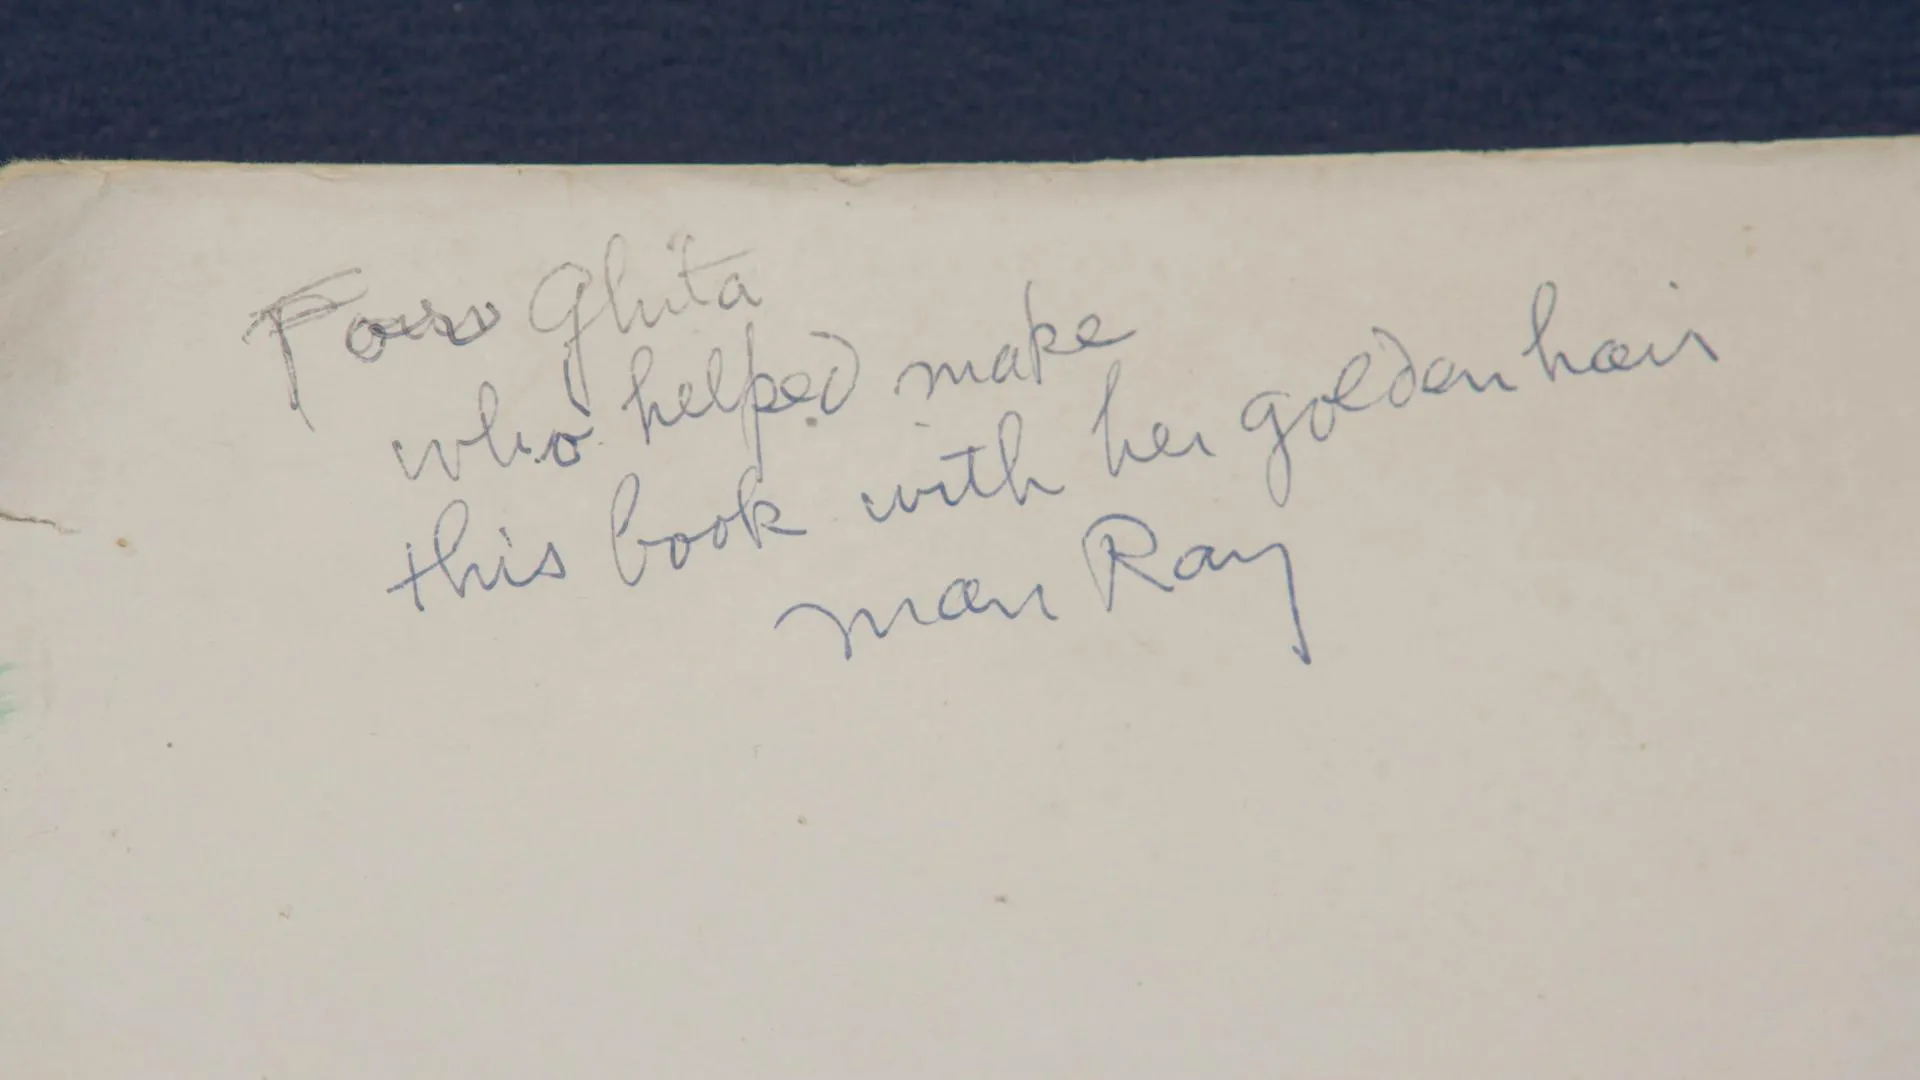 For Ghita
who helped make
this book with her golden hair
man Ray